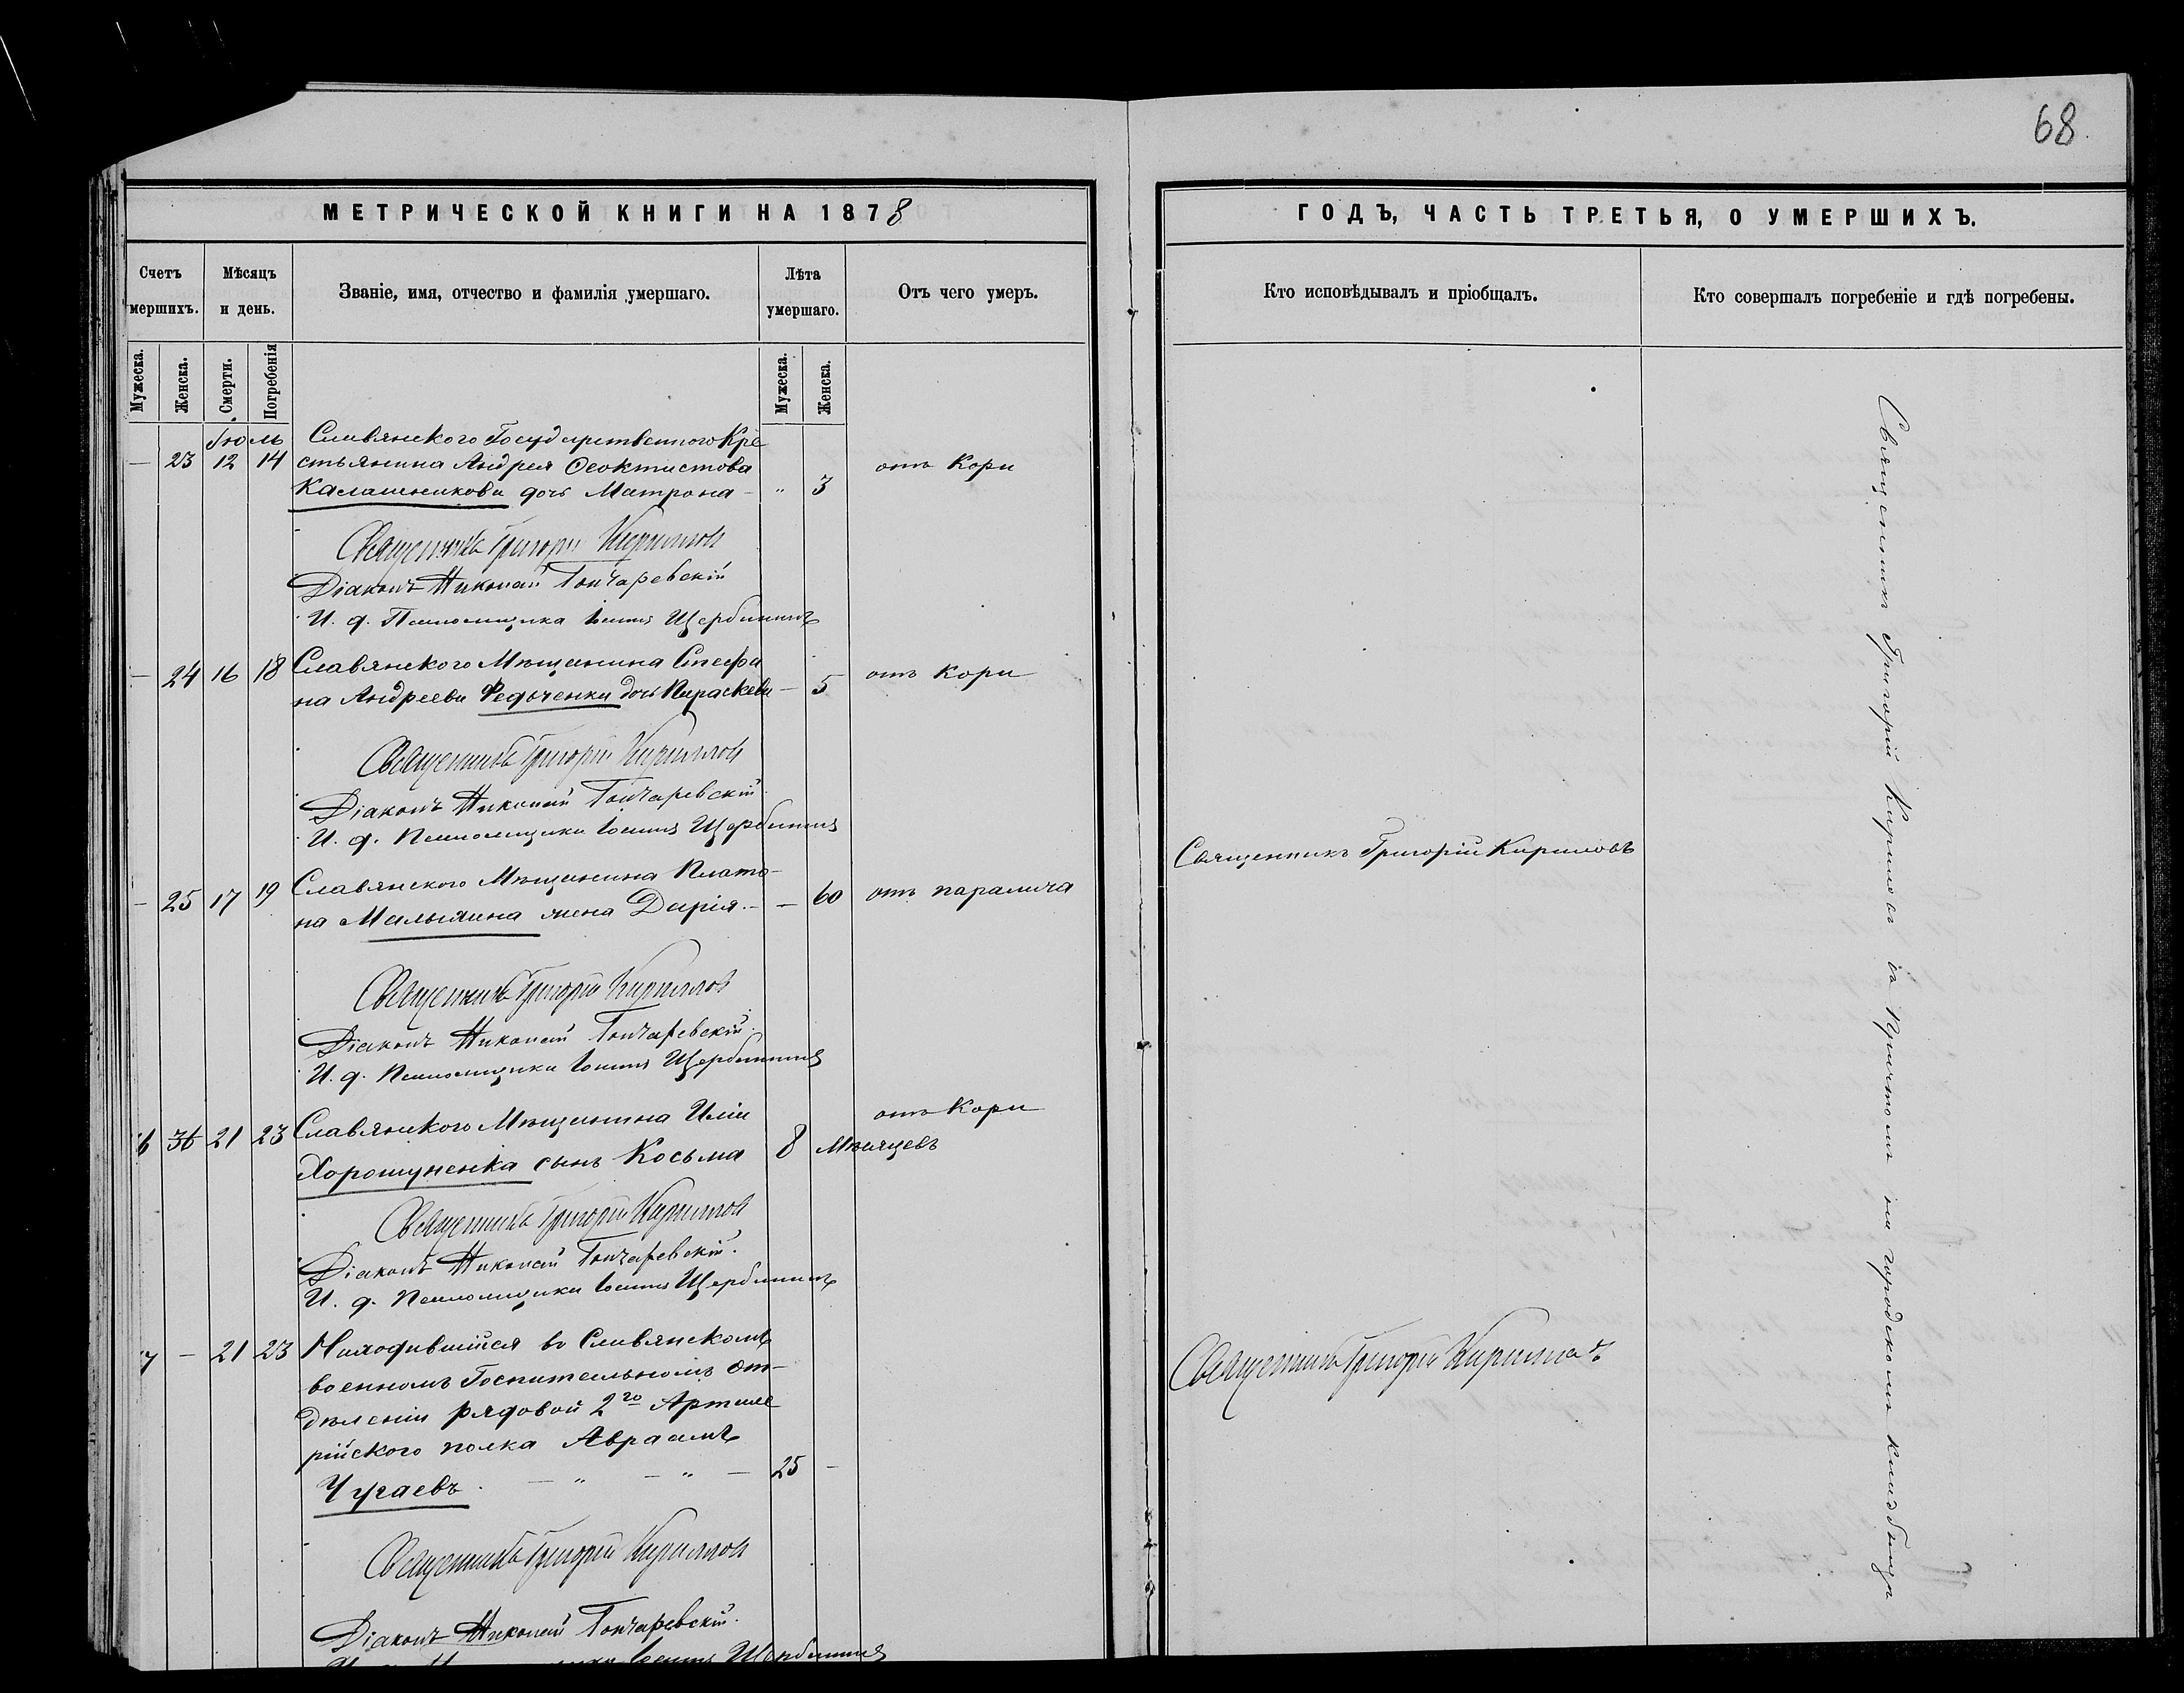 68.
МЕТРИЧЕСКОЙ КНИГИ НА 1878
ГОДЪ, ЧАСТЬ ТРЕТЬЯ, О УМЕРШИХЪ.
Счетъ
мершихъ.
Мѣсяцъ
и день.
Званіе, имя, отчество и фамилія умершаго.
Лѣта
умершаго.
Отъ чего умеръ.
Кто исповѣдывалъ и пріобщалъ.
Кто совершалъ погребеніе и гдѣ погребены.
Мужеска.
Женска.
Смерти.
Погребенія
Мужеска.
Женска.
Іюль Славянского Государственного Кре
— 23 12 14 стьянина Андрея Феоктистова
Калашникова дочь Матрона — „ 3 отъ Кори
Священникъ Григорій Кириллов
Діаконъ Николай Гончаревскій
И. д. Псаломщика Іоаннъ Щербининъ
— 24 16 18 Славянского Мѣщанина Стефа
на Андреева Федьченка дочь Параскева — 5 отъ Кори
Священникъ Григорій Кириллов
Діаконъ Николай Гончаревскій.
И. д. Псаломщика Іоаннъ Щербининъ
— 25 17 19 Славянского Мѣщанина Плато-
на Малыхина жена Дарія. — — 60 отъ паралича
Священникъ Григорій Кириловъ
Священникъ Григорій Кириллов
Діаконъ Николай Гончаревскій.
И. д. Псаломщика Іоаннъ Щербининъ
6 36 21 23 Славянского Мѣщанина Иліи
Хорошуненка сынъ Косьма 8 Мѣсяцевъ отъ Кори
Священникъ Григорій Кириллов
Діаконъ Николай Гончаревскій.
И. д. Псаломщика Іоаннъ Щербининъ
7 — 21 23 Находившійся въ Славянскомъ
военномъ Госпитальномъ от-
дѣленіи рядовой 2го Артиле
рійского полка Авраамъ
Чугаевъ. — „ — „ — 25 —
Священникъ Григорій Кириллов
Священникъ Григорій Кириллов
Діаконъ Николай Гончаревскій.
Іоаннъ Щербининъ
Священникъ Григорій Кириловъ съ Причтомъ на городскомъ кладбищѣ